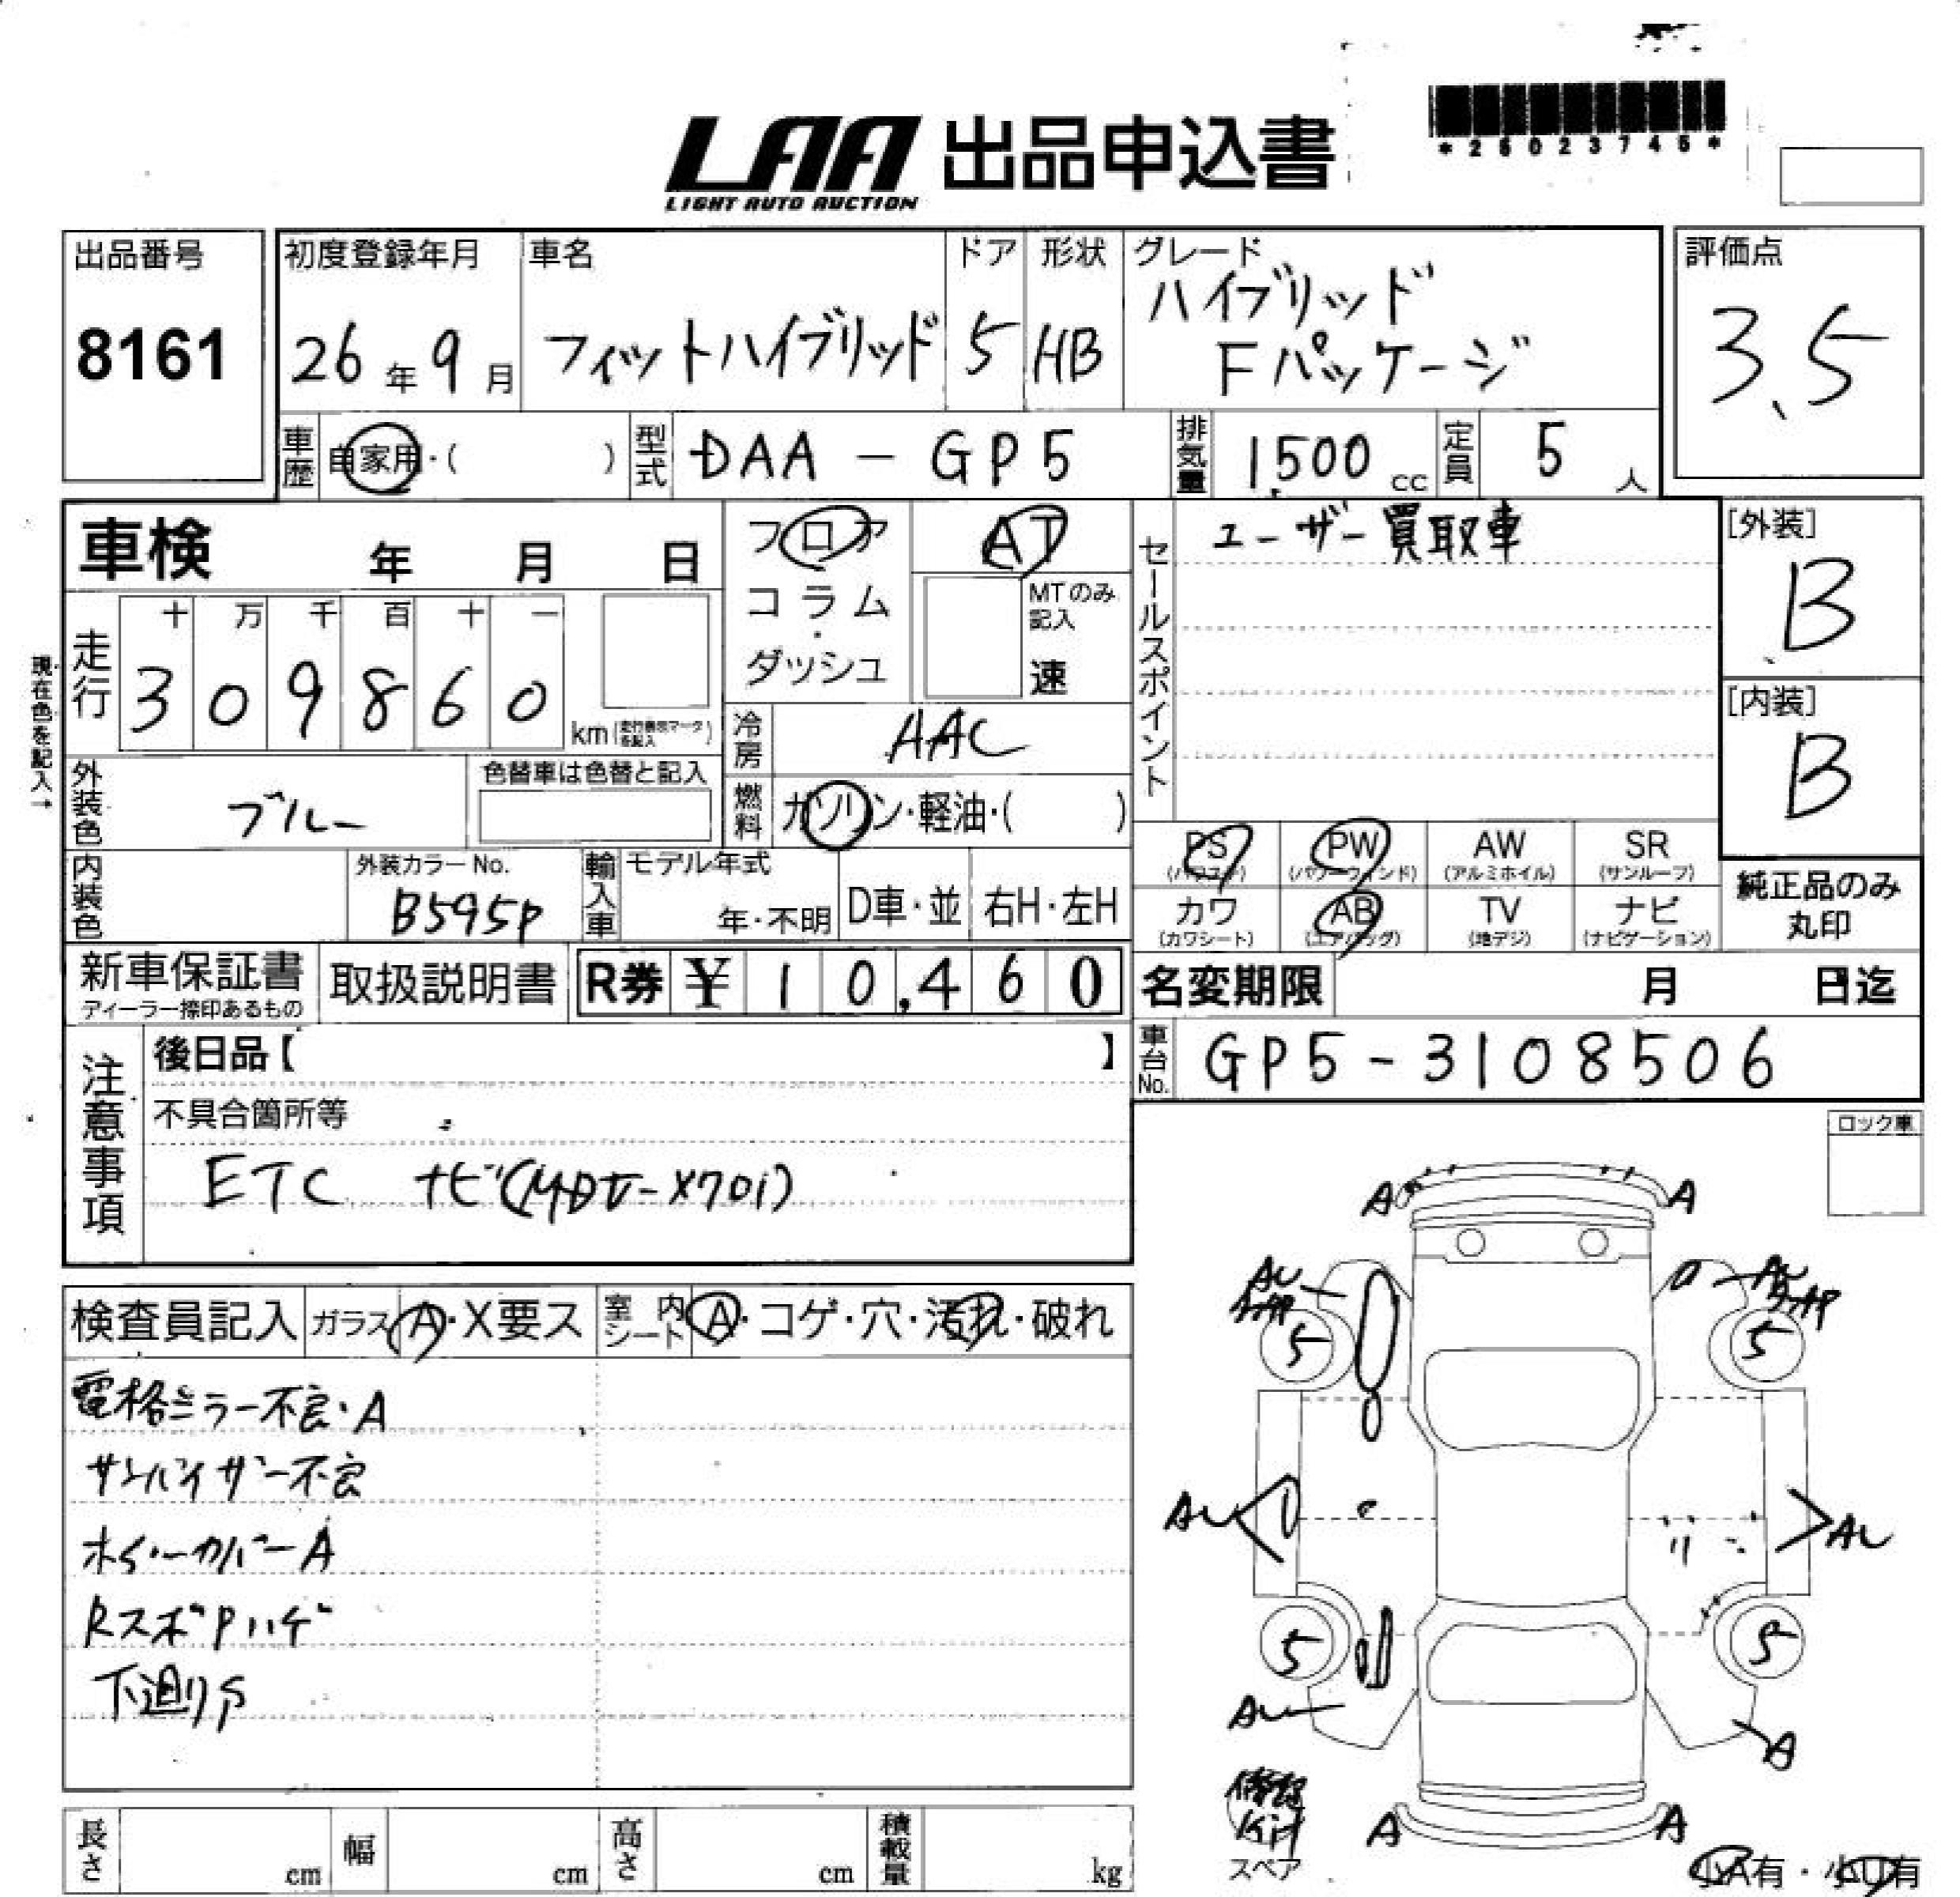 *25023745*
LAA 出品申込書
LIGHT AUTO AUCTION
出品番号
8161
初度登録年月
26年9月
車名
フィットハイブリッド
ドア
5
形状
HB
グレード
ハイブリッド
Fパッケージ
評価点
3.5
車歴 自家用・( )
型式 DAA-GP5
排気量 1,500 cc
定員 5人
車検 年 月 日
フロア
コラム
・
ダッシュ
AT
MTのみ記入
速
セールスポイント
ユーザー買取車
[外装]
B
[内装]
B
現在色を記入→
走行
十 万 千 百 十 一
3 0 9 8 6 0
km
冷房 AAC
燃料 ガソリン・軽油・( )
外装色 ブルー
色替車は色替と記入
PS PW AW SR
(パワステ) (パワーウィンドウ) (アルミホイル) (サンルーフ)
カワ AB TV ナビ
(カワシート) (エアバッグ) (地デジ) (ナビゲーション)
純正品のみ
丸印
内装色
外装カラーNo.
B595P
輸入車
モデル年式
年・不明
D車・並
右H・左H
新車保証書
ディーラー捺印あるもの
取扱説明書
R券 ¥10,460
名変期限 月 日迄
車台No. GP5-3108506
注意事項
後日品【 】
不具合箇所等
ETC ナビ
ロック車
検査員記入
ガラス A・X要ス
室内シート A・コゲ・穴・汚れ・破れ
電格ミラー不良・A
サンバイザー不良
ホイールカバーA
RスポPハゲ
下廻りS
A A
AU AU
5 5
AU AU
5 5
AU A
A A
修理
Kit
スペア
小A有・小U有
長さ cm
幅 cm
高さ cm
積載量 kg